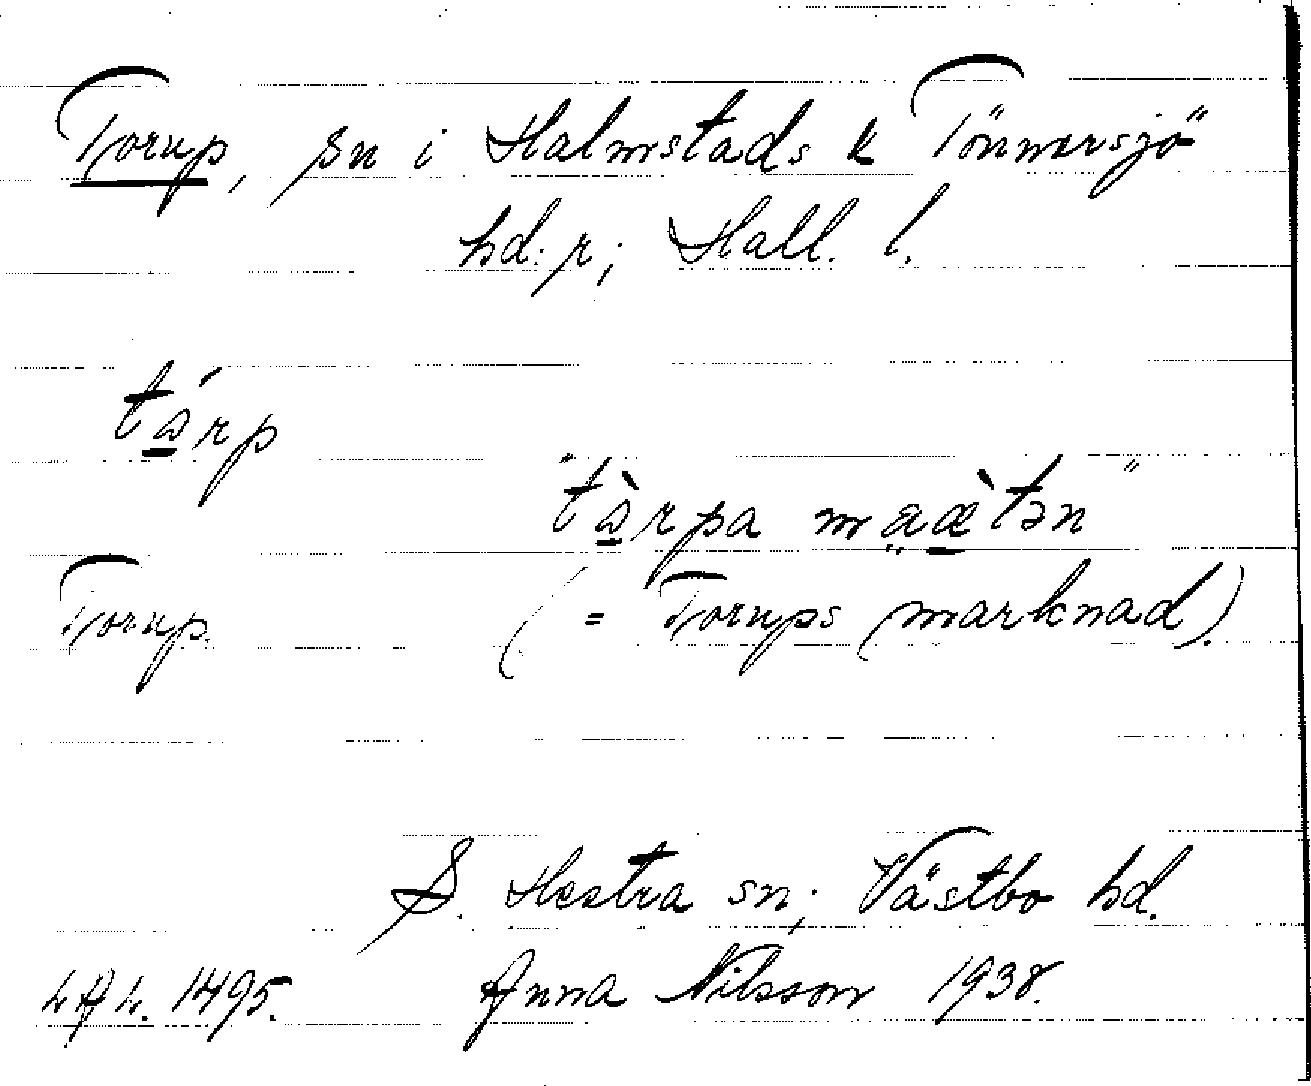 Torup, sn i Halmstads k Tönnersjö
hd:r; Hall. l.
tá̲rp
"tà̲rpa ma̤æ̲̀tən"
Torup. (= Torups marknad).
S. Hestra sn; Västbo hd.
Anna Nilsson 1938.
1495.